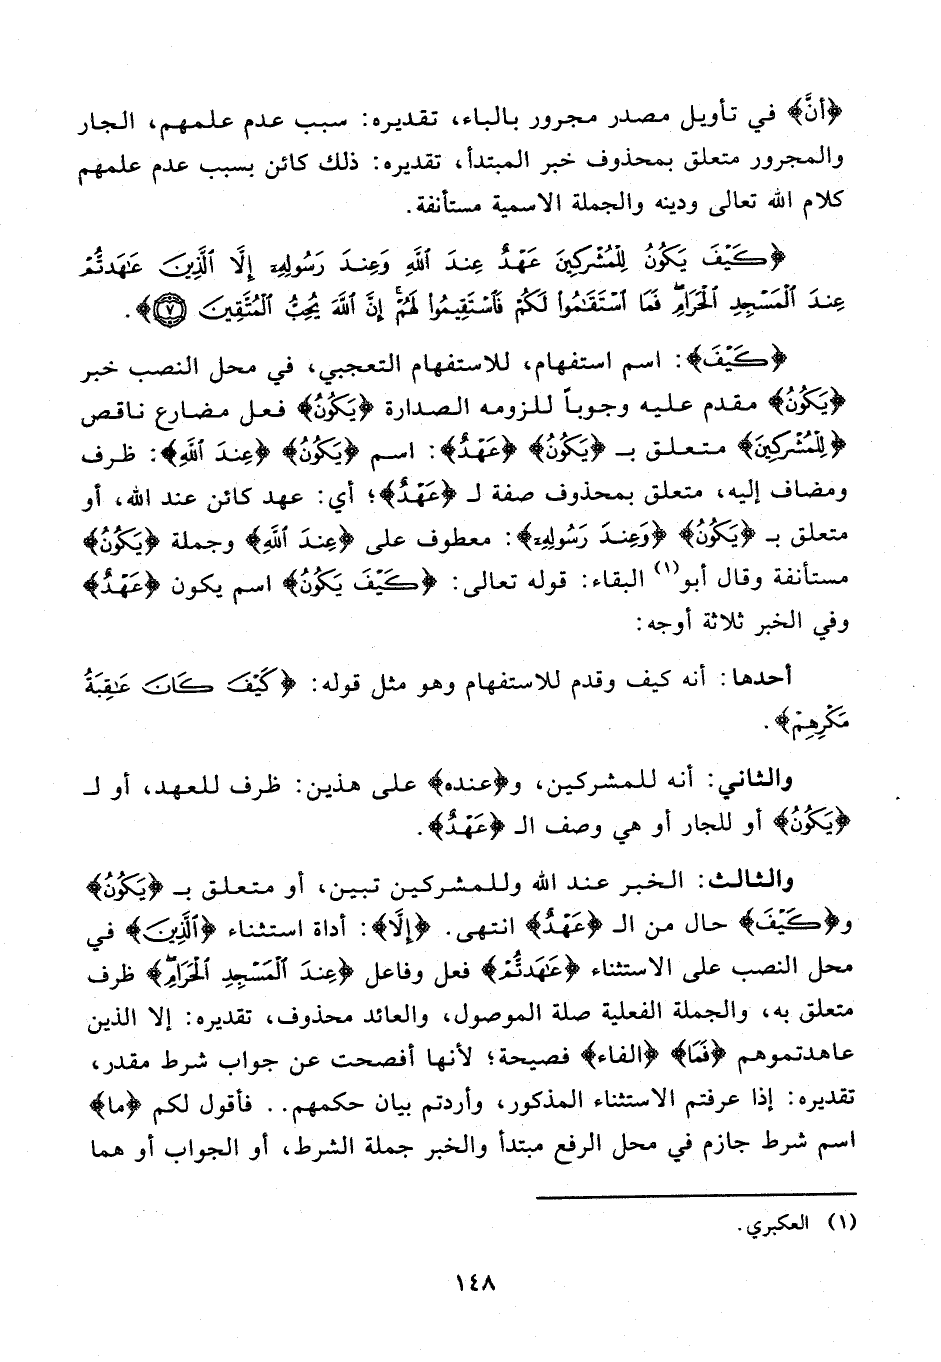 ﴿أنَّ﴾ في تأويل مصدر مجرور بالباء، تقديره: سبب عدم علمهم، الجار
والمجرور متعلق بمحذوف خبر المبتدأ، تقديره: ذلك كائن بسبب عدم علمهم
كلام الله تعالى ودينه والجملة الاسمية مستأنفة.
﴿كَيْفَ يَكُونُ لِلْمُشْرِكِينَ عَهْدٌ عِندَ ٱللَّهِ وَعِندَ رَسُولِهِۦٓ إِلَّا ٱلَّذِينَ عَٰهَدتُّمْ
عِندَ ٱلْمَسْجِدِ ٱلْحَرَامِۖ فَمَا ٱسْتَقَٰمُوا۟ لَكُمْ فَٱسْتَقِيمُوا۟ لَهُمْۚ إِنَّ ٱللَّهَ يُحِبُّ ٱلْمُتَّقِينَ ۝٧﴾.
﴿كَيْفَ﴾: اسم استفهام، للاستفهام التعجبي، في محل النصب خبر
﴿يَكُونُ﴾ مقدم عليه وجوباً للزومه الصدارة ﴿يَكُونُ﴾ فعل مضارع ناقص
﴿لِلْمُشْرِكِينَ﴾ متعلق بـ ﴿يَكُونُ﴾ ﴿عَهْدٌ﴾: اسم ﴿يَكُونُ﴾ ﴿عِندَ ٱللَّهِ﴾: ظرف
ومضاف إليه، متعلق بمحذوف صفة لـ ﴿عَهْدٌ﴾؛ أي: عهد كائن عند الله، أو
متعلق بـ ﴿يَكُونُ﴾ ﴿وَعِندَ رَسُولِهِۦٓ﴾: معطوف على ﴿عِندَ ٱللَّهِ﴾ وجملة ﴿يَكُونُ﴾
مستأنفة وقال أبو(١) البقاء: قوله تعالى: ﴿كَيْفَ يَكُونُ﴾ اسم يكون ﴿عَهْدٌ﴾
وفي الخبر ثلاثة أوجه:
أحدها: أنه كيف وقدم للاستفهام وهو مثل قوله: ﴿كَيْفَ كَانَ عَٰقِبَةُ
مَكْرِهِمْ﴾.
والثاني: أنه للمشركين، و﴿عنده﴾ على هذين: ظرف للعهد، أو لـ
﴿يَكُونُ﴾ أو للجار أو هي وصف الـ ﴿عَهْدٌ﴾.
والثالث: الخبر عند الله وللمشركين تبين، أو متعلق بـ ﴿يَكُونُ﴾
و﴿كَيْفَ﴾ حال من الـ ﴿عَهْدٌ﴾ انتهى. ﴿إِلَّا﴾: أداة استثناء ﴿ٱلَّذِينَ﴾ في
محل النصب على الاستثناء ﴿عَٰهَدتُّمْ﴾ فعل وفاعل ﴿عِندَ ٱلْمَسْجِدِ ٱلْحَرَامِۖ﴾ ظرف
متعلق به، والجملة الفعلية صلة الموصول، والعائد محذوف، تقديره: إلا الذين
عاهدتموهم ﴿فَمَا﴾ ﴿الفاء﴾ فصيحة؛ لأنها أفصحت عن جواب شرط مقدر،
تقديره: إذا عرفتم الاستثناء المذكور، وأردتم بيان حكمهم.. فأقول لكم ﴿ما﴾
اسم شرط جازم في محل الرفع مبتدأ والخبر جملة الشرط، أو الجواب أو هما
(١) العكبري.
١٤٨